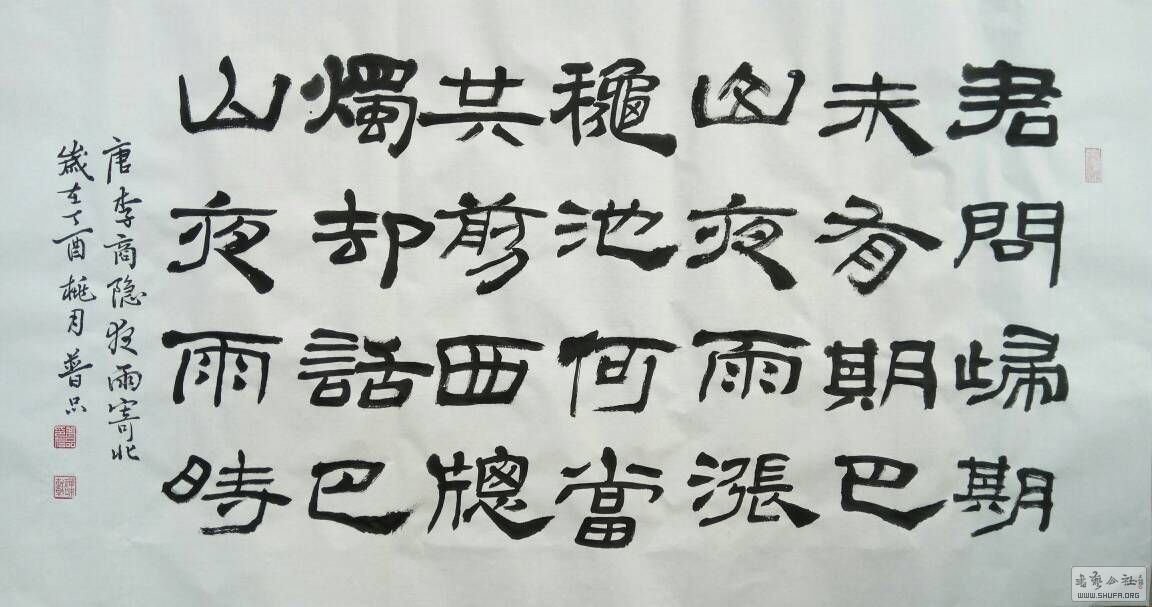 君問歸期
未有期巴
山夜雨漲
穐池何當
共剪西牕
燭却話巴
山夜雨時
唐李商隐夜雨寄北
歲在丁酉桃月普品
书艺公社
WWW.SHUFA.ORG